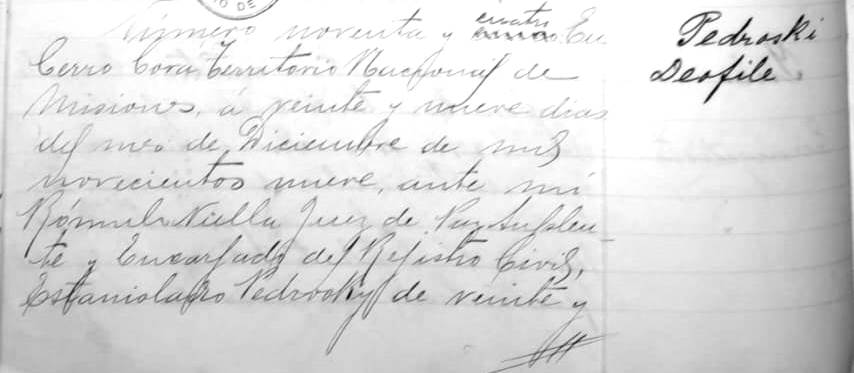 Número noventa y cuatro En
Cerro Cora Territorio Nacional de
Misiones, á veinte y nueve dias
del mes de Diciembre de mil
novecientos nueve, ante mí
Rómulo Nalla Juez de Paz Suplen
te y Encargado del Registro Civil,
Estanislado Pedrosky de veinte y
Pedroski
Deofile